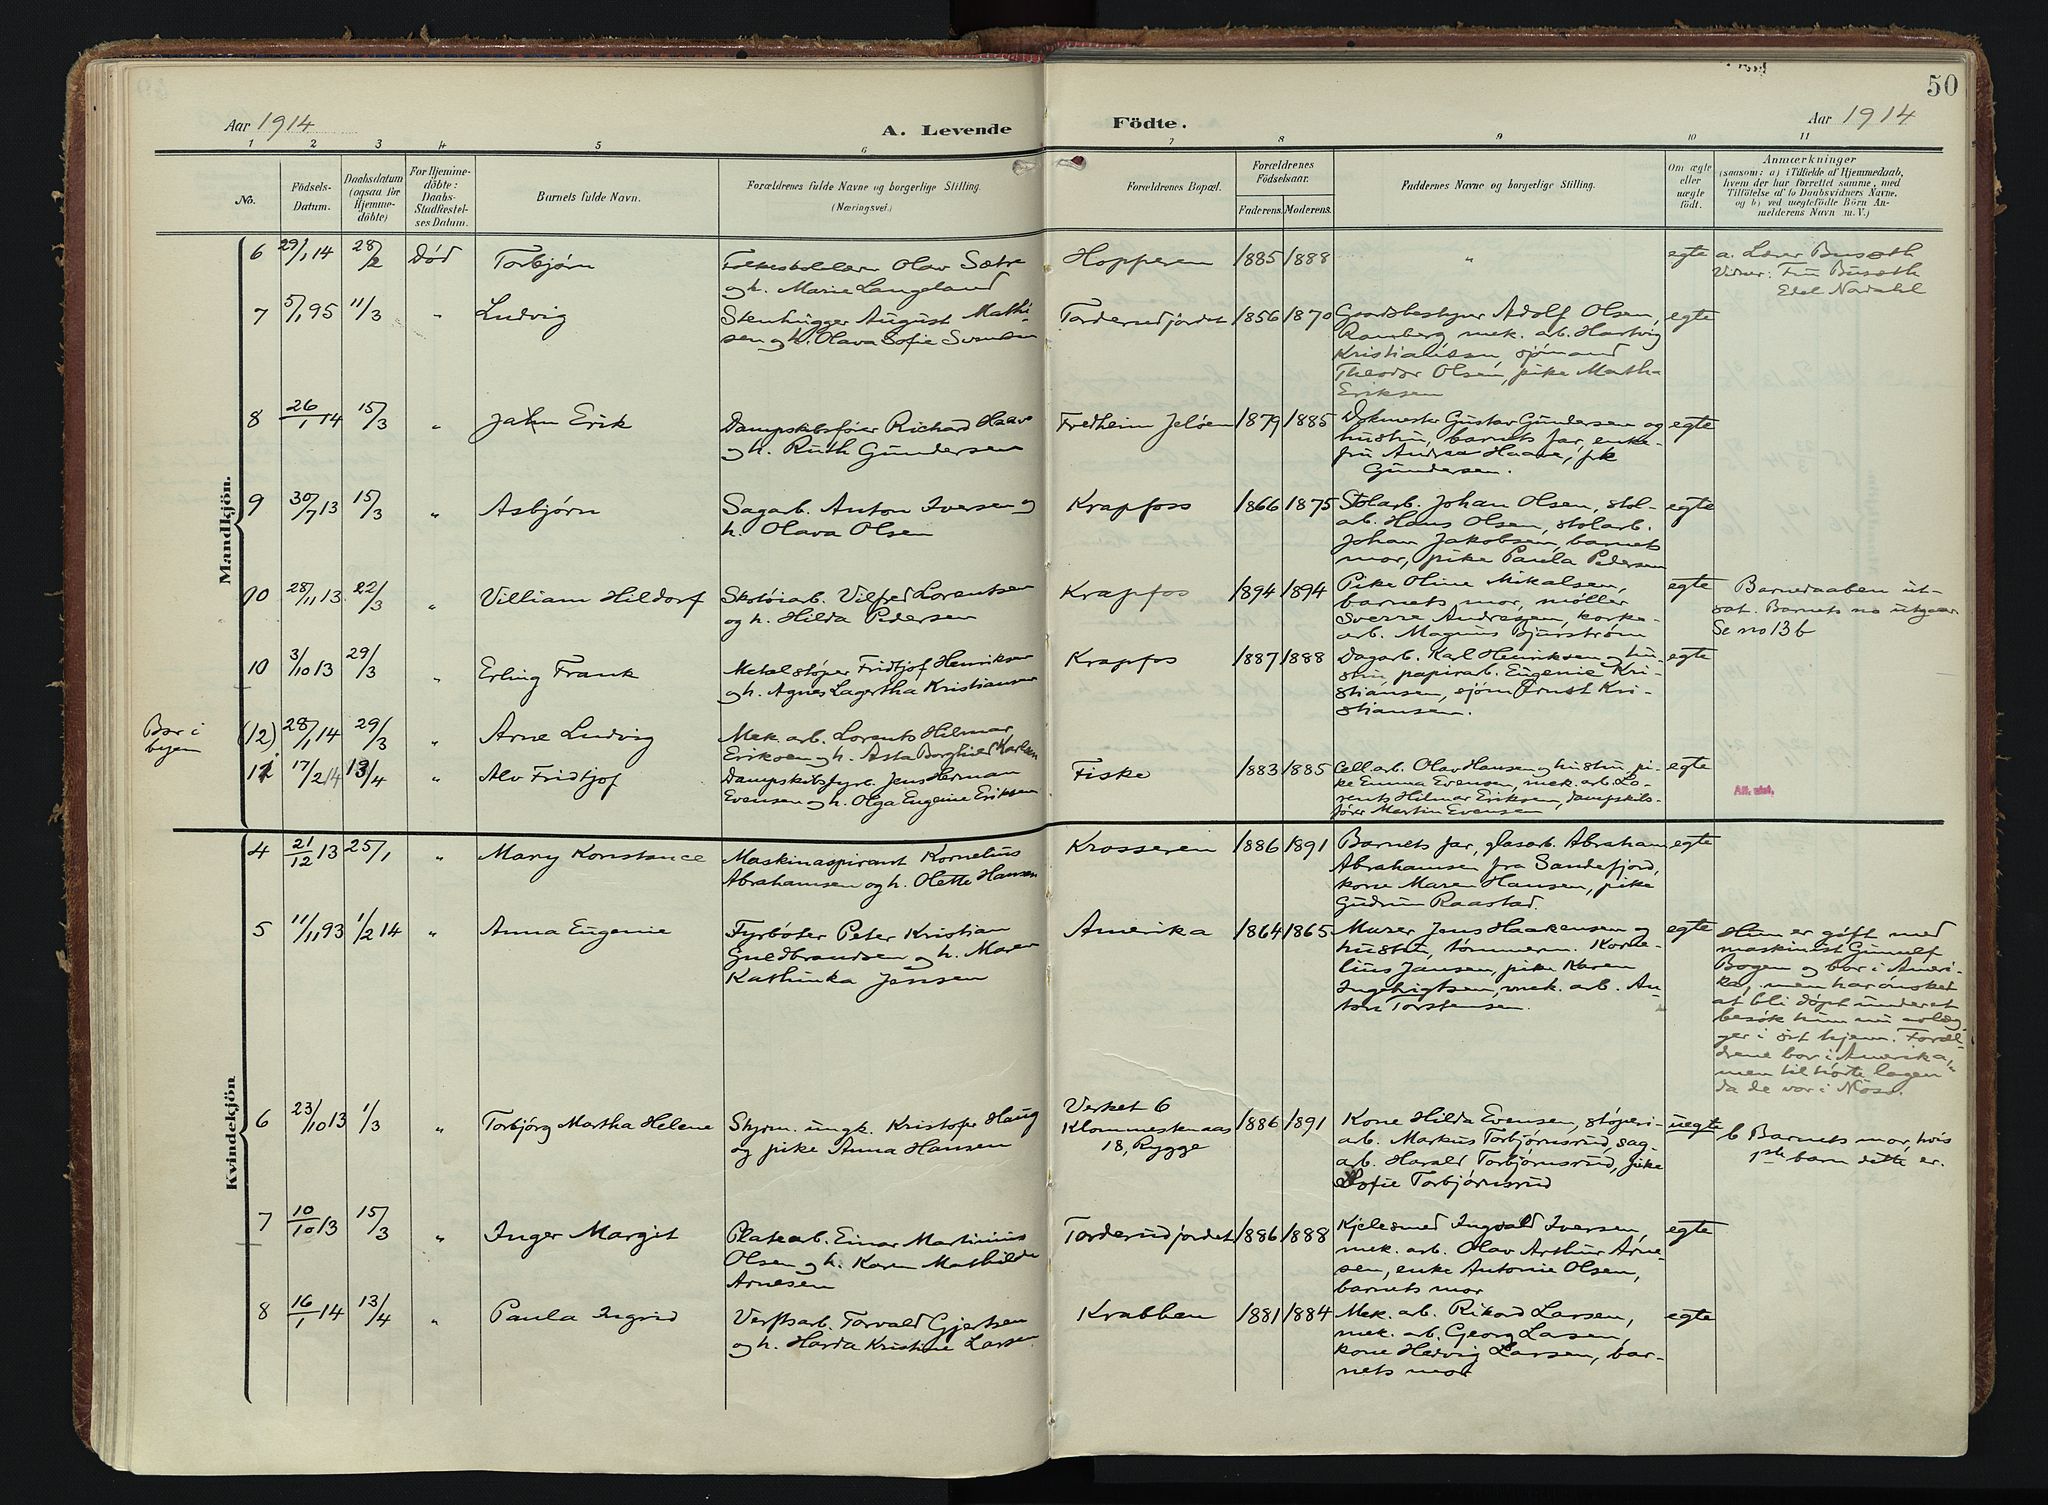 50
Aar 1914
A. Levende
Födte.
Aar 1914
1 2 3 4 5 6 7 8 9 10 11
No.
Födsels-
Datum.
Daabsdatum
(ogsaa for
Hjemme-
döbte)
For Hjemme-
döbte:
Daabs-
Stadfæstel-
ses Datum.
Barnets fulde Navn.
Forældrenes fulde Navne og borgerlige Stilling.
(Næringsvei.)
Forældrenes Bopæl.
Forældrenes
Födselsaar.
Faderens. Moderens.
Faddernes Navne og borgerlige Stilling.
Om ægte
eller
uægte
födt.
Anmærkninger
(saasom: a) i Tilfælde af Hjemmedaab,
hvem der har forrettet samme, med
Tilföielse af to Daabsvidners Navne.
og b) ved uægtefödte Börn An-
melderens Navn m. V.)
Mandkjön.
6 29/1 14 28/2 Død Torbjørn
Folkeskolelærer Olav Sætre
og h. Marie Langeland
Hopperen 1885 1888 " egte
a. Lærer Busæth
Vidner: Fru Busæth
Edel Nordahl
7 5/1 95 11/3 " Ludvig
Stenhugger August Mathi-
sen og h. Olava Sofie Svensen
Torderudjordet 1856 1870
Gaardsbestyrer Adolf Olsen,
Ramberg, mek. arb. Hartvig
Kristiansen, sjømand
Theodor Olsen, pike Martha
Eriksen
egte
8 26/1 14 15/3 " John Erik
Dampskibsfører Richard Haave
og h. Ruth Gundersen
Fredheim Jeløen 1879 1885
Dokmester Gustav Gundersen og
hustru, barnets far, enke-
fru Andrea Haave, frk
Gundersen.
egte
9 30/7 13 15/3 " Asbjørn
Sagarb. Anton Iversen og
h. Olava Olsen
Krapfoss 1866 1875
Stolarb. Johan Olsen, stol-
arb. Hans Olsen, stolarb.
Johan Jakobsen, barnets
mor, pike Paula Pedersen
egte
10 28/11 13 22/3 " Villiam Hildorf
Skotøiarb. Vilfred Lorentsen
og h. Hilda Pedersen
Krapfos 1894 1894
Pike Oline Mikalsen,
barnets mor, møller
Sverre Andresen, korke-
arb. Magnus Bjurstrøm
egte
Barnedaaben ut-
sat. Barnets no utgaar
Se no 13 b
10 3/10 13 29/3 " Erling Frank
Metalstøper Fridtjof Henriksen
og h. Agnes Lagertha Kristiansen
Krapfos 1887 1888
Dagarb. Karl Henriksen og hu-
stru, papirarb. Eugenie Kri-
stiansen, sjøm Ernst Kri-
stiansen.
egte
Bor i
byen
(12) 28/1 14 29/3 " Arne Ludvig
Mek. arb. Lorents Hilmar
Eriksen og h. Asta Borghild Karlsen
11 17/2 14 13/4 " Alv Fridtjof
Dampskibsfyrb. Jens Herman
Evensen og h. Olga Eugenie Eriksen
Fiske 1883 1885
Cell. arb. Olav Hansen og hustru, pi-
ke Emma Evensen, mek. arb. Lo-
rents Hilmar Eriksen, dampskibs-
fører Martin Evensen
egte
Kvindekjön
4 21/12 13 25/1 " Mary Konstance
Maskinaspirant Kornelius
Abrahamsen og h. Olette Hansen
Krosseren 1886 1891
Barnets far, glasarb. Abraham
Abrahamsen fra Sandefjord,
kone Maren Hansen, pike
Gudrun Raastad.
egte
5 11/11 93 1/2 14 " Anna Eugenie
Fyrbøter Peter Kristian
Guldbrandsen og h. Maren
Kathinka Jensen
Amerika 1864 1865
Murer Jens Haakensen og
hustru, tømmerm. Korne-
lius Jansen, pike Karen
Ingebrigtsen, mek. arb. An-
ton Torstensen.
egte
Hun er gift med
maskinist Gunnulf
Bogen og bor i Ameri-
ka, men har ønsket
at bli døpt under et
besøk hun nu avlæg-
ger i sit hjem. Foræl-
drene bor i Amerika,
men tilhørte lagen
da de var i Moss.
6 23/10 13 1/3 " Torbjørg Martha Helene
Styrm. ungk. Kristofer Haug
og pike Anna Hansen
Verket 6
Klommestenaas
18, Rygge
1886 1891
Kone Hilda Evensen, støperi-
arb. Markus Torbjørnsrud, sag-
arb. Harald Torbjørnsrud, pike
Sofie Torbjørnsrud
uegte
b Barnets mor, hvis
1ste barn dette er.
7 10/10 13 15/3 " Inger Margit
Platearb. Einar Martinius
Olsen og h. Karen Mathilde
Arnesen
Torderudjordet 1886 1888
Kjelesmed Ingvald Iversen,
mek. arb. Olav Arthur Arne-
sen, enke Antonie Olsen,
barnets mor
egte
8 16/1 14 13/4 " Paula Ingrid
Verftsarb. Torvald Gjertsen
og h. Harda Kristine Larsen
Krabben 1881 1884
Mek. arb. Rikard Larsen,
mek. arb. Georg Larsen,
kone Hedvig Larsen, bar-
nets mor
egte